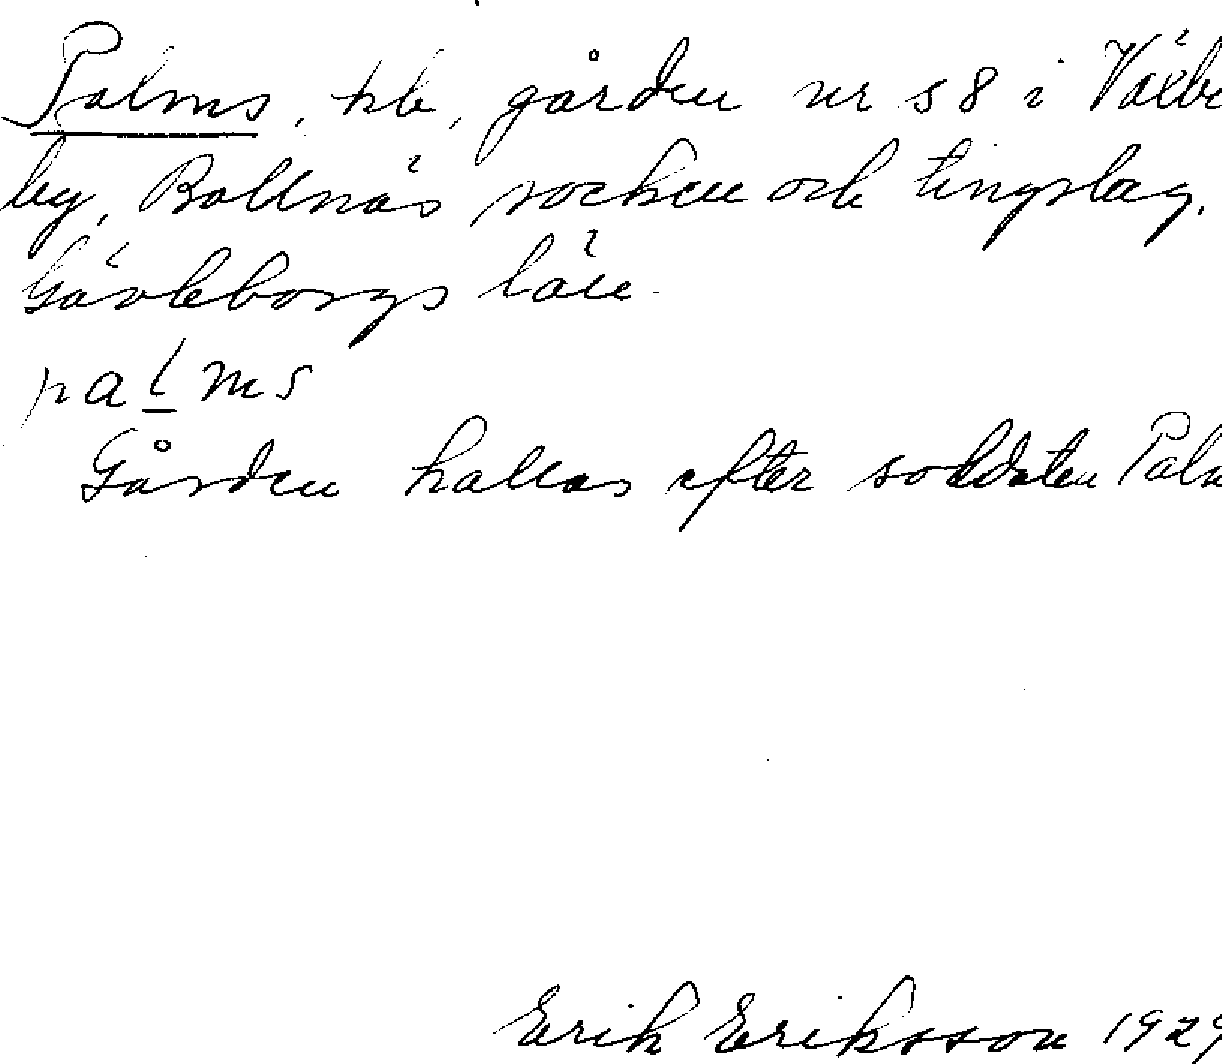 Palms, hb, gården nr 58 i Växbo
by, Bollnäs socken och tingslag,
Gävleborgs län.
palms
Gården kallas efter soldaten Palm
Erik Eriksson 1929